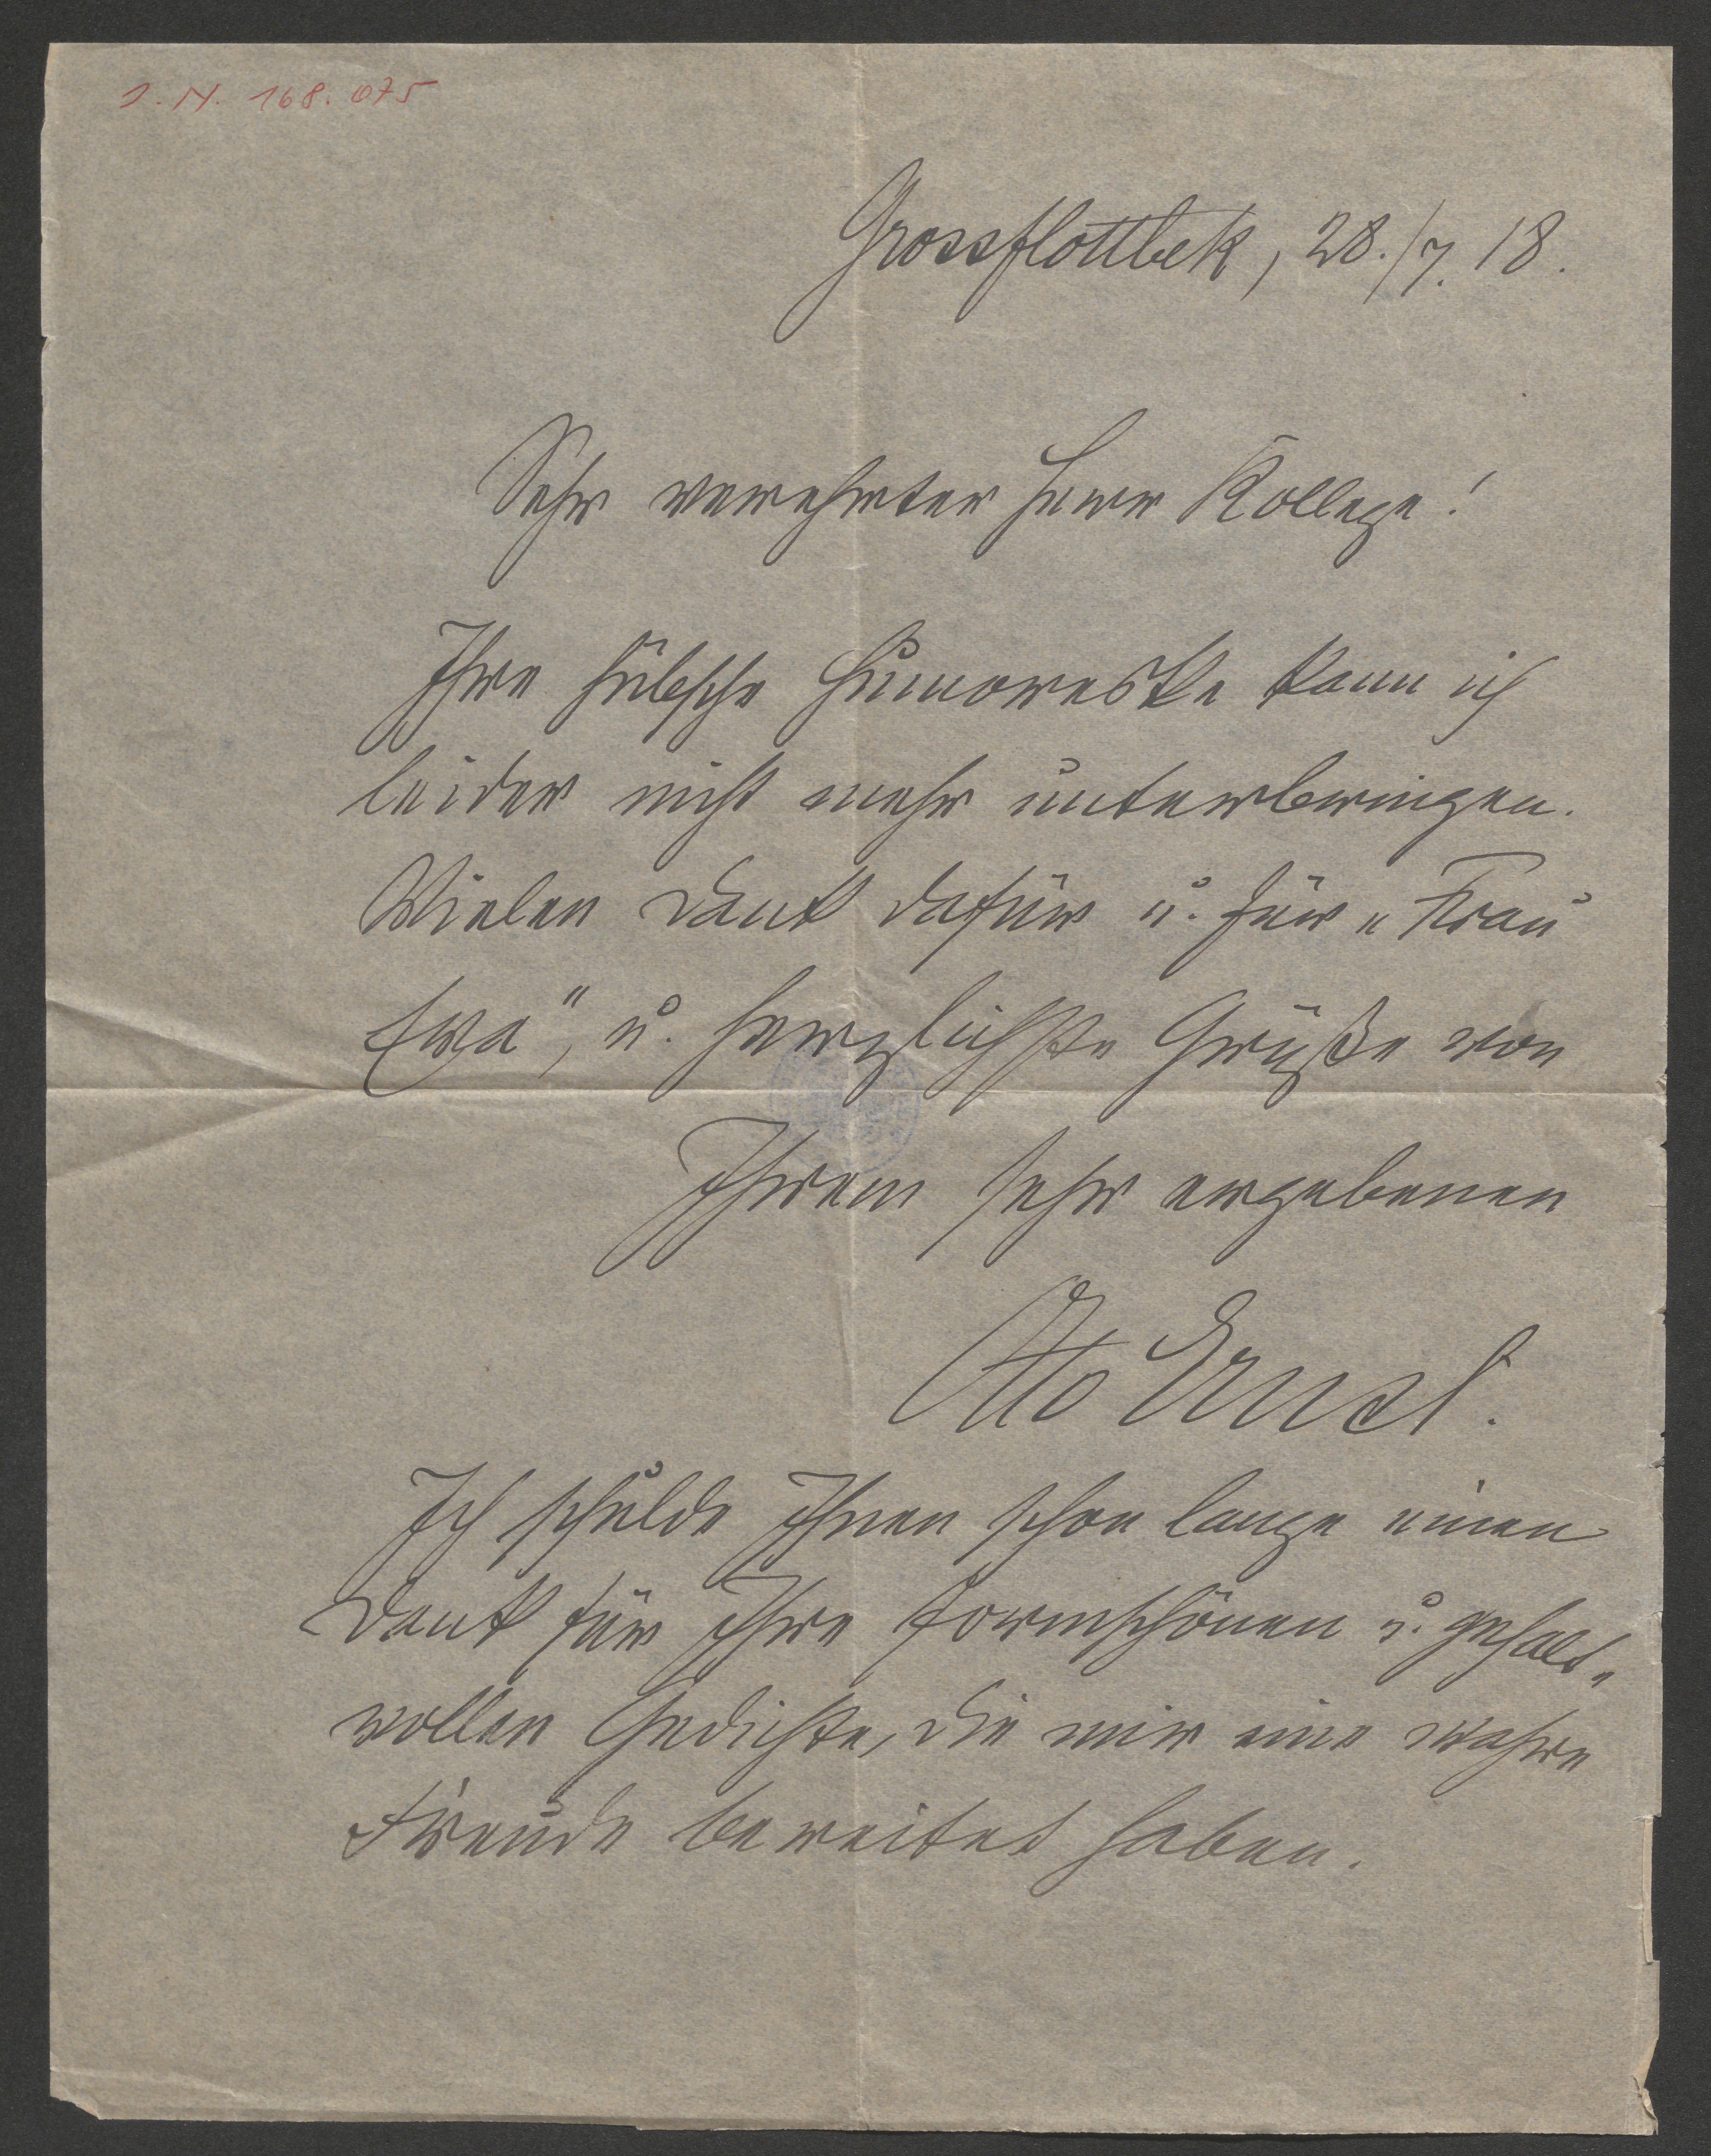 J. N. 168.075
Grossflottbek, 28./7. 18.
Sehr verehrter Herr Kollege!
Ihre hübsche Humoreske kann ich
leider nicht mehr unterbringen.
Vielen Dank dafür u. für „Frau
Eva", u. herzlichste Grüße von
Ihrem sehr ergebenen
Otto Ernst.
Ich schulde Ihnen schon lange einen
Dank für Ihre formschönen u. gehalt-
vollen Gedichte, die mir eine wahre
Freude bereitet haben.